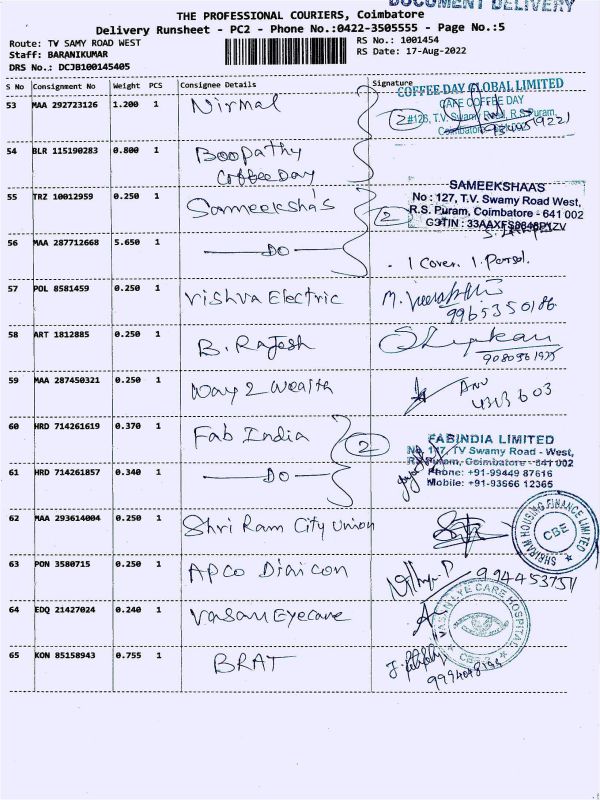 DOCUMENT DELIVERY
THE PROFESSIONAL COURIERS, Coimbatore
Delivery Runsheet - PC2 - Phone No.:0422-3505555 - Page No.:5
Route: TV SAMY ROAD WEST
RS No.: 1001454
Staff: BARANIKUMAR
RS Date: 17-Aug-2022
DRS No.: DCJB100145405
S No Consignment No Weight PCS Consignee Details Signature
COFFEE DAY GLOBAL LIMITED
CAFE COFFEE DAY
53 MAA 292723126 1.200 1 Nirmal
2 #126, T.V. Swamy Road, R.S.Puram,
Coimbatore
54 BLR 115190283 0.800 1 Boopathy
Coffee Day
SAMEEKSHAAS
55 TRZ 10012959 0.250 1 Sameeksha's
No : 127, T.V. Swamy Road West,
2 R.S. Puram, Coimbatore - 641 002
GSTIN :
56 MAA 287712668 5.650 1 DO
- 1 Cover. 1. Parsel.
57 POL 8581459 0.250 1 Vishva Electric
99653 50186
58 ART 1812885 0.250 1 B. Rajesh
59 MAA 287450321 0.250 1 Way 2 Wealth
60 HRD 714261619 0.370 1 Fab India
2 FABINDIA LIMITED
No. 117, TV Swamy Road - West,
R.S. Puram, Coimbatore - 641 002
61 HRD 714261857 0.340 1 DO
Phone: +91-99449 87616
Mobile: +91-93666 12365
62 MAA 293614004 0.250 1 Shri Ram City Union
SHRIRAM HOUSING FINANCE LIMITED
CBE
63 PON 3580715 0.250 1 Apco Diaicon
9944537511
64 EDQ 21427024 0.240 1 Vasan Eyecare
VASAN EYE CARE HOSPITAL
65 KON 85158943 0.755 1 BRAT